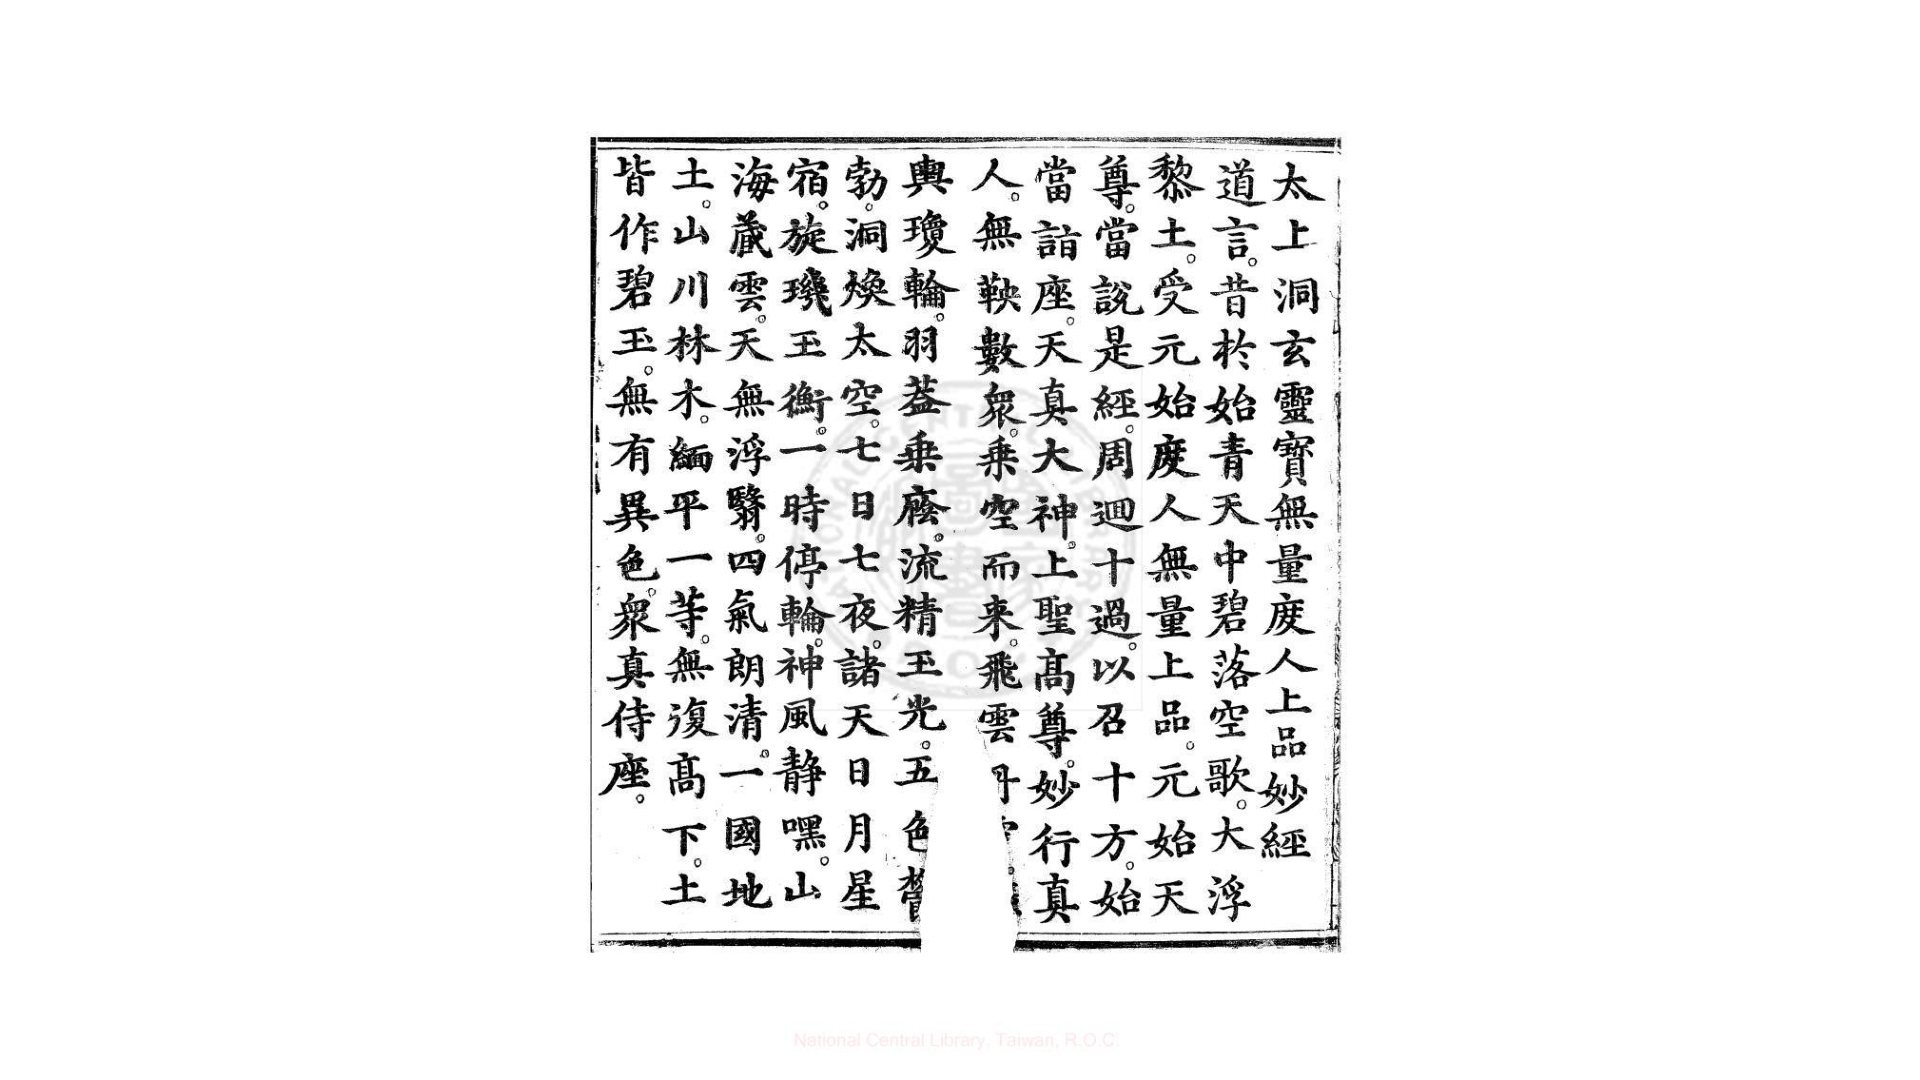 太上洞玄靈寶無量度人上品妙經
道言。昔於始青天中碧落空歌。大浮
黎土。受元始度人無量上品。元始天
尊。當說是經。周迴十過。以召十方。始
當詣座。天真大神。上聖髙尊。妙行真
人。無鞅數衆。乗空而来。飛雲
輿瓊輪。羽蓋乗廕。流精玉光。五色
勃。洞煥太空。七日七夜。諸天日月星
宿。旋璣玉衡。一時停輪。神風静嘿。山
海藏雲。天無浮翳。四氣朗清。一國地
土。山川林木。緬平一等。無復髙下。土
皆作碧玉。無有異色。衆真侍座。
National Central Library, Taiwan, R.O.C.